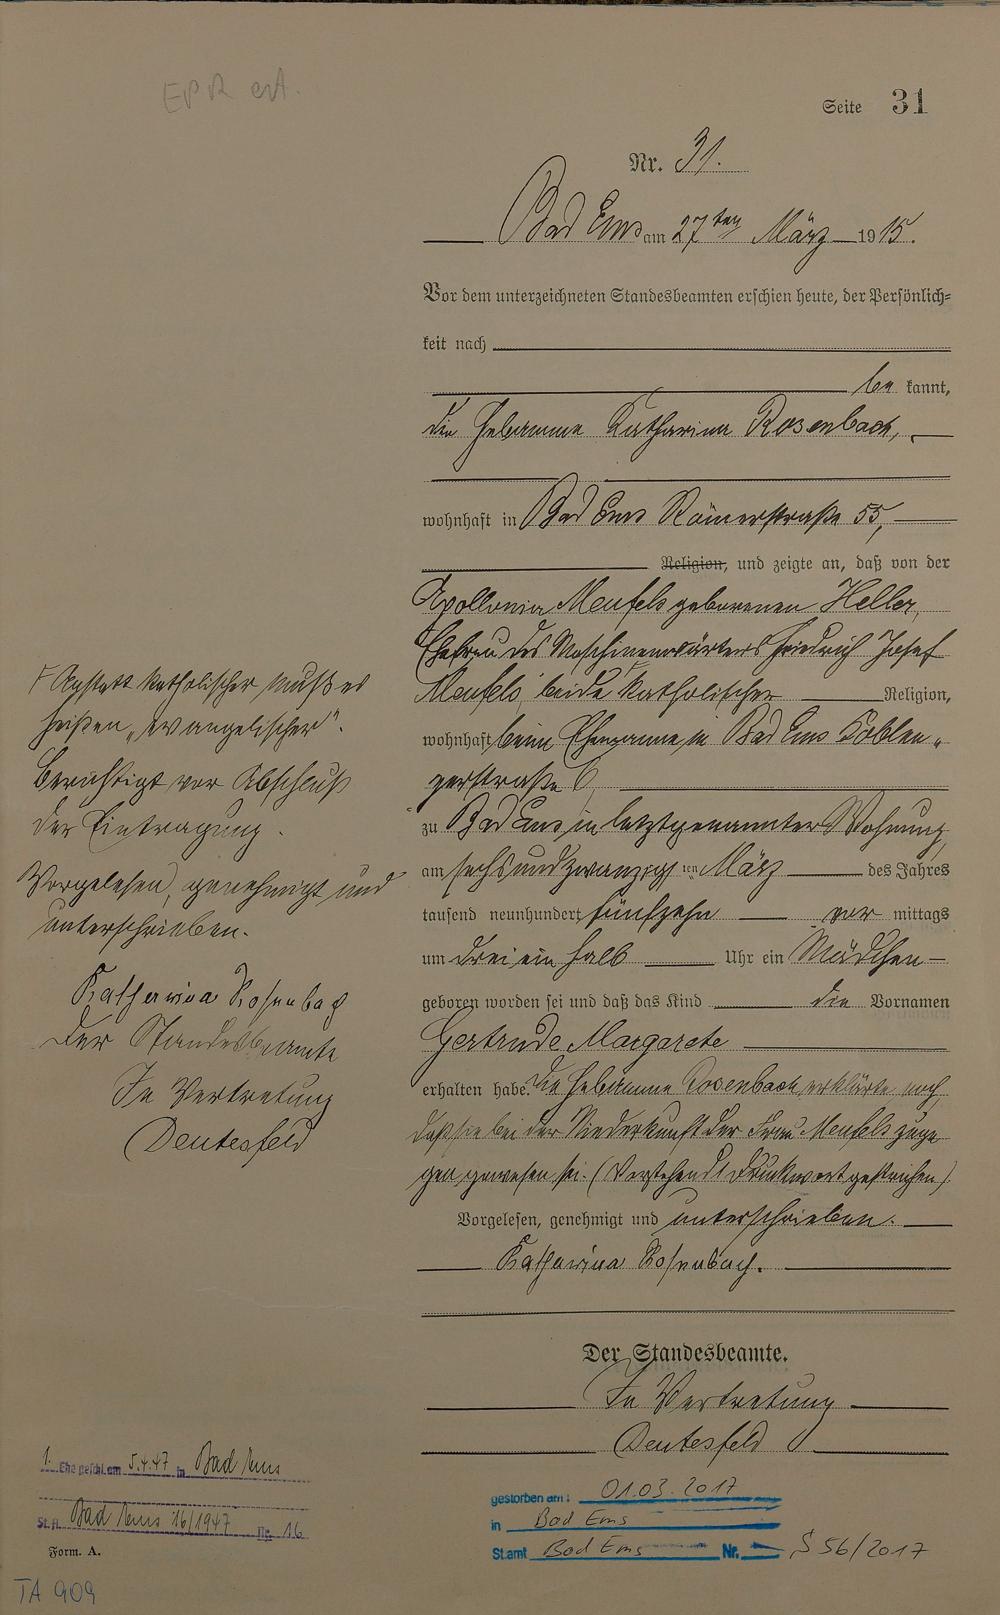 EPR ert.
Seite 31
Nr. 31.
Bad Ems am 27ten März 1915.
Vor dem unterzeichneten Standesbeamten erschien heute, der Persönlich=
keit nach
be kannt,
die Hebamme Katharina Rosenbach,
wohnhaft in Bad Ems Römerstraße 55,
Religion, und zeigte an, daß von der
Apollonia Meufels geborenen Heller,
Ehefrau des Maschinenwärters Friedrich Josef
Meufels, beide katholischer Religion,
wohnhaft beim Ehemanne in Bad Ems Coblen„
zerstraße 6,
zu Bad Ems in letztgenannter Wohnung,
am sechsundzwanzigsten März des Jahres
tausend neunhundert fünfzehn vor mittags
um drei ein halb Uhr ein Mädchen
geboren worden sei und daß das Kind die Vornamen
Gertrude Margarete
erhalten habe. Die Hebamme Rosenbach erklärte noch,
daß sie bei der Niederkunft der Frau Meufels zuge
gen gewesen sei. (Vorstehend 1 Druckwort gestrichen)
Vorgelesen, genehmigt und unterschrieben.
Katharina Rosenbach.
Der Standesbeamte.
In Vertretung
Deutesfeld
Anstatt katholischer muß es
heißen „evangelischer".
Berichtigt vor Abschluß
der Eintragung.
Vorgelesen, genehmigt und
unterschrieben.
Katharina Rosenbach
Der Standesbeamte
In Vertretung
Deutesfeld
1. Eheschl. am 5.4.47 in Bad Ems
St.A. Bad Ems 16/1947 Nr. 16
Form. A.
TA 909
gestorben am: 01.03.2017
in Bad Ems
St.amt Bad Ems Nr. S 56/2017